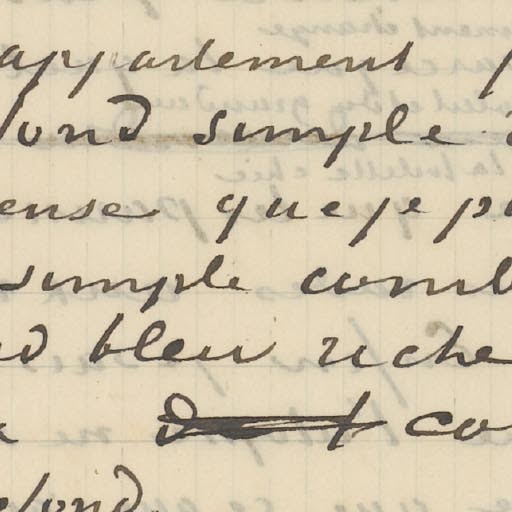 appartement
fond simple
ense que je p
simple comb
d bleu riche
co
fond.